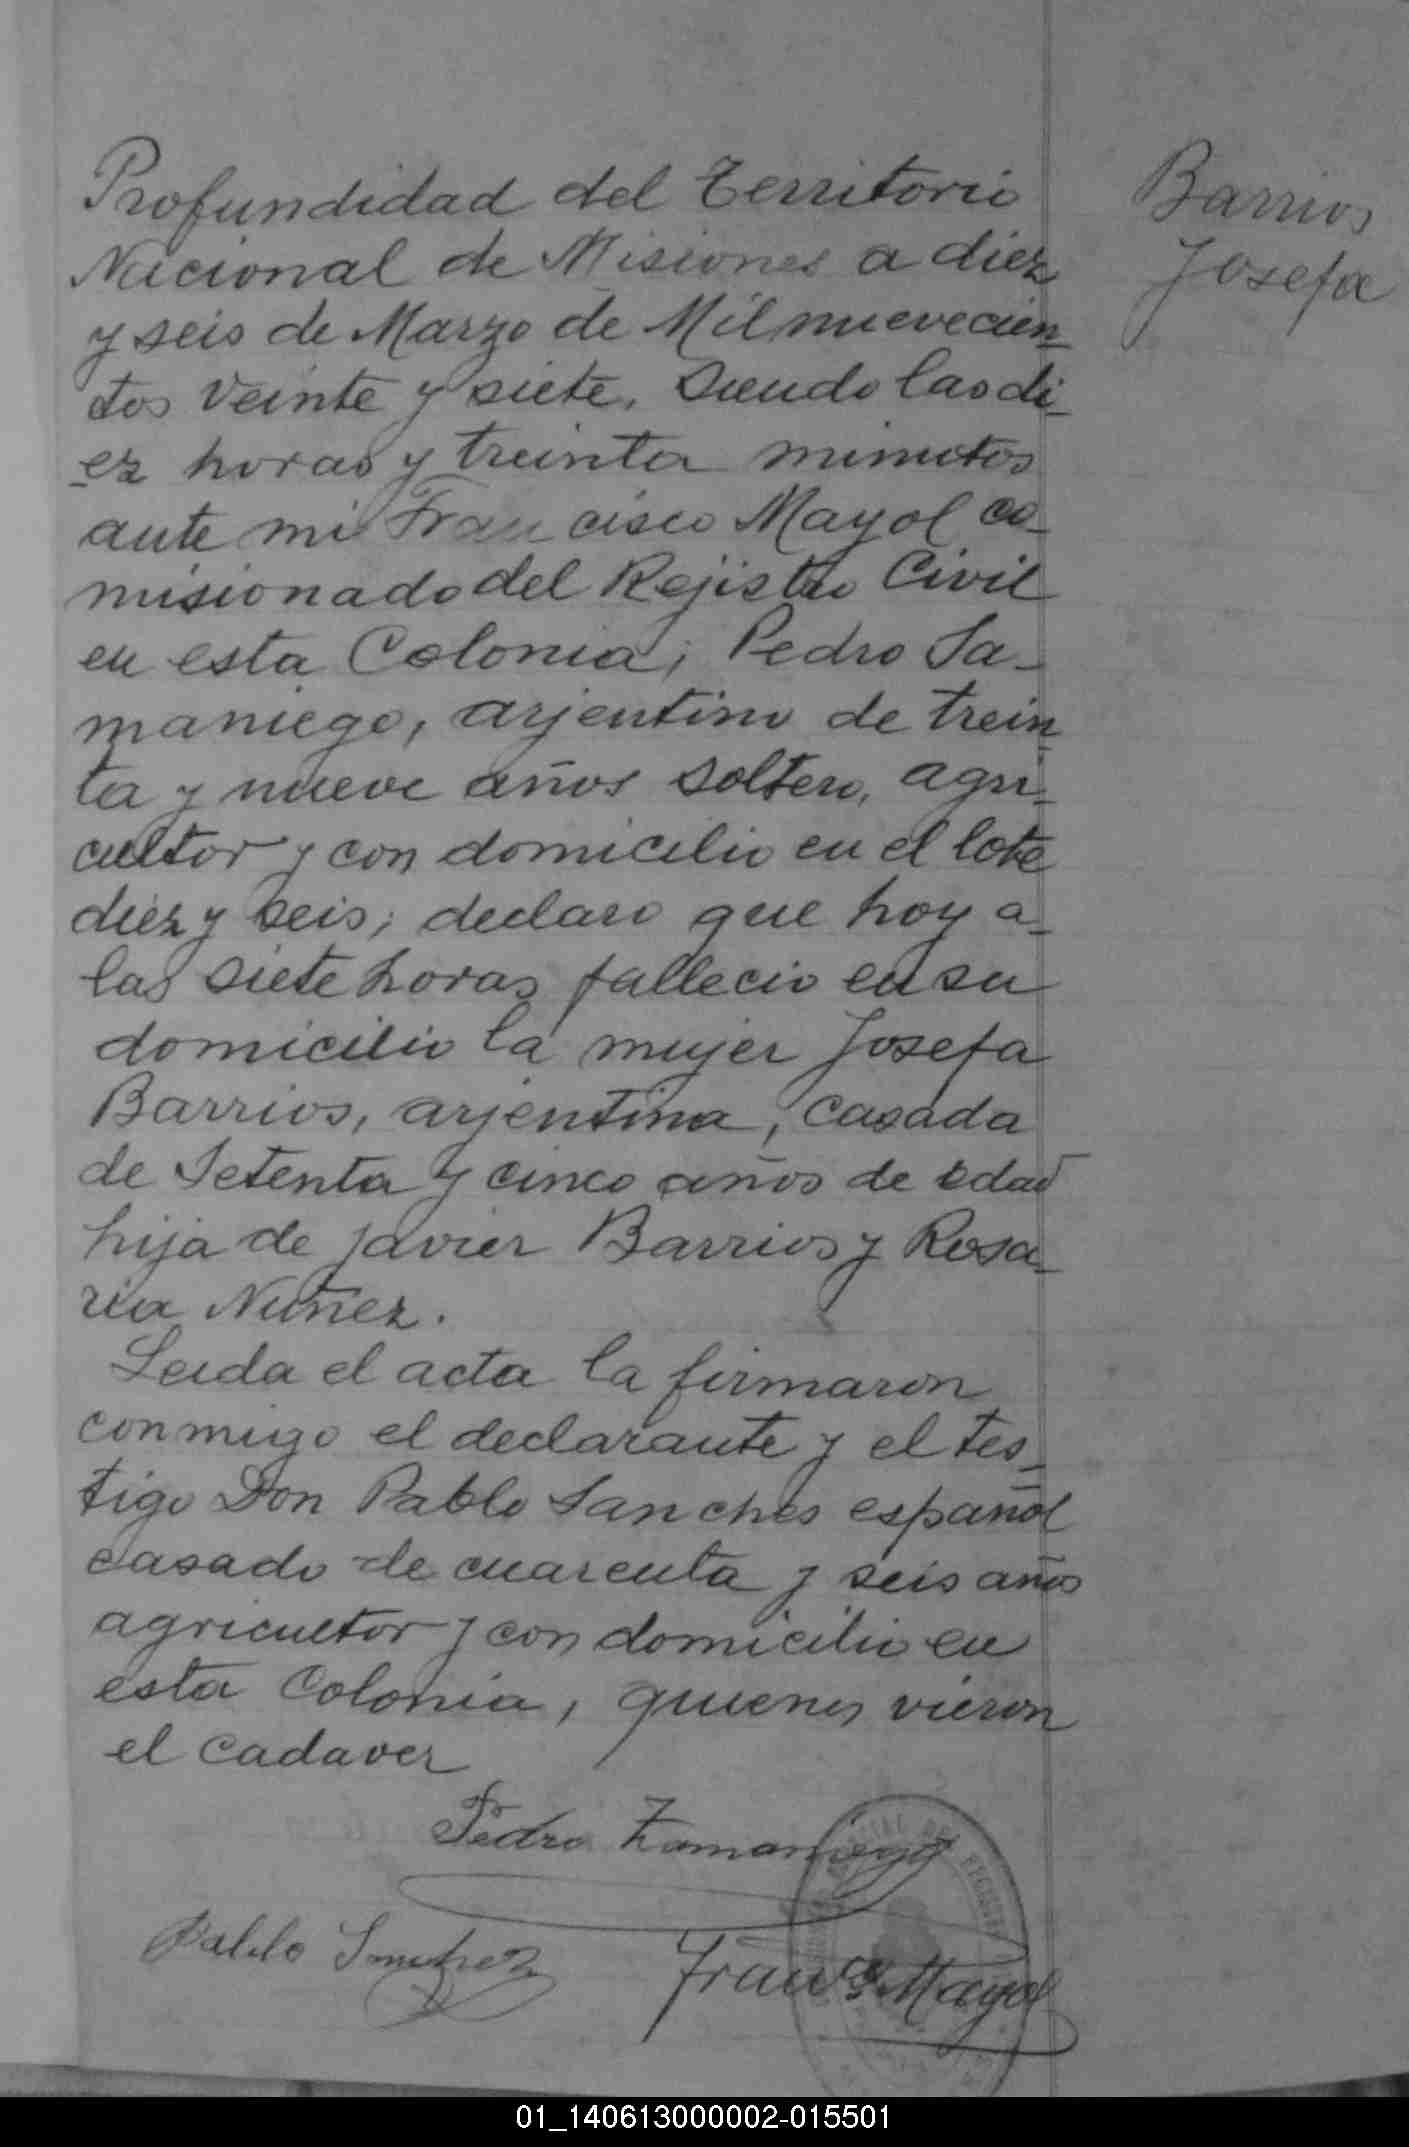 Barrios
Josefa
Profundidad del Territorio
Nacional de Misiones a diez
y seis de Marzo de Mil nuevecien-
tos veinte y siete. Siendo las di-
ez horas y treinta minutos
ante mi Francisco Mayol co-
misionado del Rejistro Civil
en esta Colonia; Pedro Sa-
maniego, arjentino de trein-
ta y nueve años soltero, agri-
cultor y con domicilio en el lote
diez y seis; declaro que hoy a-
las siete horas fallecio en su
domicilio la mujer Josefa
Barrios, arjentina, casada
de Setenta y cinco años de edad
hija de Javier Barrios y Rosa-
ria Nuñez.
Leida el acta la firmaron
conmigo el declarante y el tes-
tigo Don Pablo Sanches español
casado de cuarenta y seis años
agricultor y con domicilio en
esta Colonia, quienes vieron
el cadaver
Pedro Zamaniego
Pablo Sanchez
Franco Mayol
01_140613000002-015501